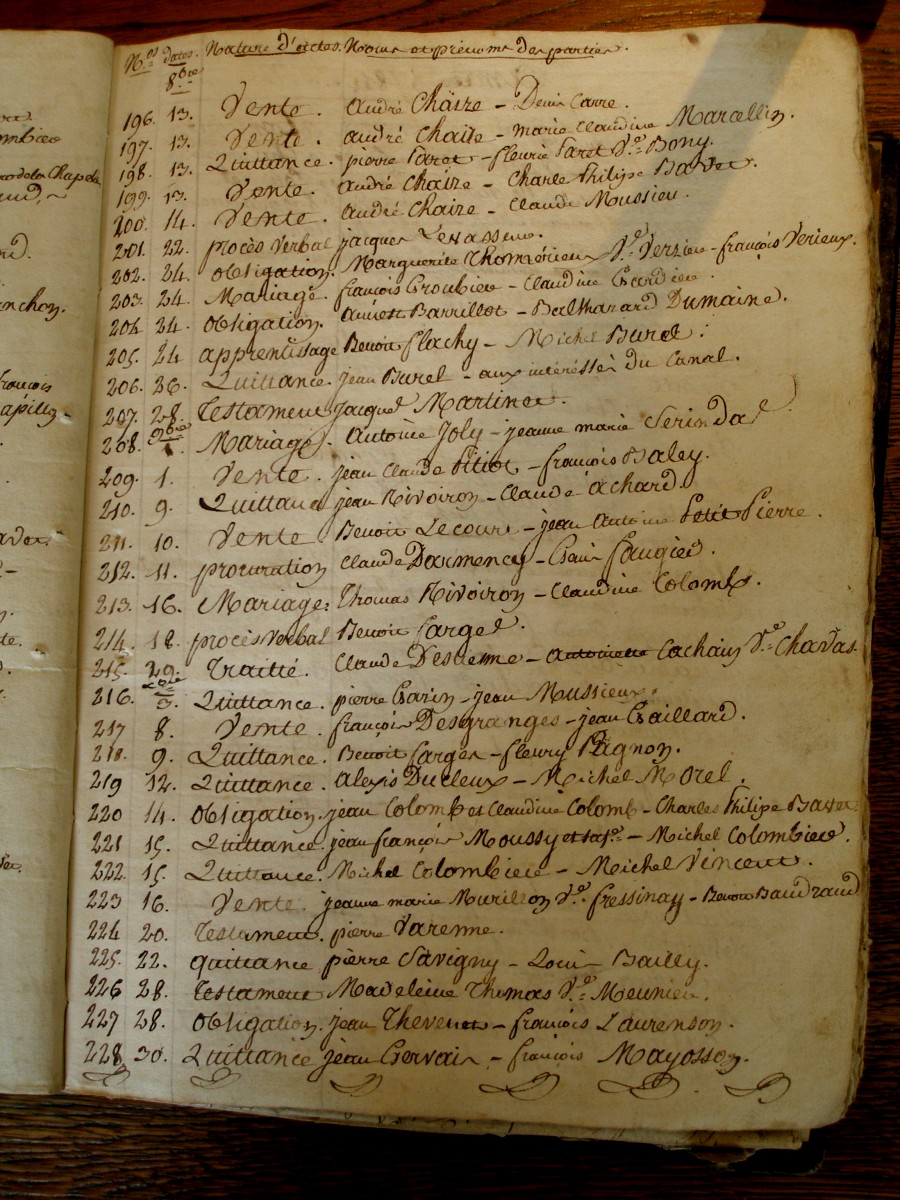 N.os dates. Nature d'actes. Noms et prénoms des parties.
8.bre
196. 13. Vente. André Chaize - Denis Carre.
197. 13. Vente. andré Chaize - marie Claudine Marcellin.
198. 13. Quittance. pierre - fleurie V.e Bony.
199. 13. Vente. André Chaize - Charle Philipe
200. 14. Vente. André Chaize - Claude Moussieu.
201. 22. procès verbal jacques Levasseur.
202. 24. obligation. Marguerite V.e Verzieu - françois Verieux.
203. 24. Mariage. françois - Claudine
204 24. obligation. Barrillot - Balthazard Dumaine.
205. 24 apprentissage Benoit Flachy - Michel Burel.
206. 26. Quittance. jean Burel - aux intéressés du Canal.
207. 28. Testament jacques Martinet.
208. 9bre 1. Mariage. Antoine Joly - jeanne marie Serindal
209. 1. Vente. jean Claude Pitiot - françois Baley.
210. 9. Quittance jean Rivoiron - Claude achard.
211. 10. Vente Benoit Lecour - jean Antoine Petit Pierre.
212. 11. procuration Claude Darmencey - faugier.
213. 16. Mariage: Thomas Rivoiron - Claudine Colomb.
214. 18. procès verbal Benoit
215. 29. Traitté. Claude Destienne - Antoinette V.e Chavas.
216. Xbre 5. Quittance. pierre Garin - jean Mussieux.
217 8. Vente. françois Desgranges - jean Gaillard.
218. 9. Quittance. Benoit - fleury Pagnon.
219 12. Quittance. alexis Ducleux - Michel Morel.
220 14. obligation. jean Colomb et Claudine Colomb - Charles Philipe
221 15. Quittance. jean françois Moussy et sa f.e - Michel Colombier.
222. 15. Quittance. Michel Colombier - Michel Vincent.
223 16. Vente. jeanne marie V.e fressinay - Benoit Baudrand
224 20. Testament. pierre Varenne.
225. 22. quittance pierre Savigny - Louis Bailly.
226 28. Testament Madeleine Thomas V.e Meunier.
227 28. obligation. jean Thevenet - françois Laurenson.
228 30. Quittance jean Gervais - françois Mayosson.